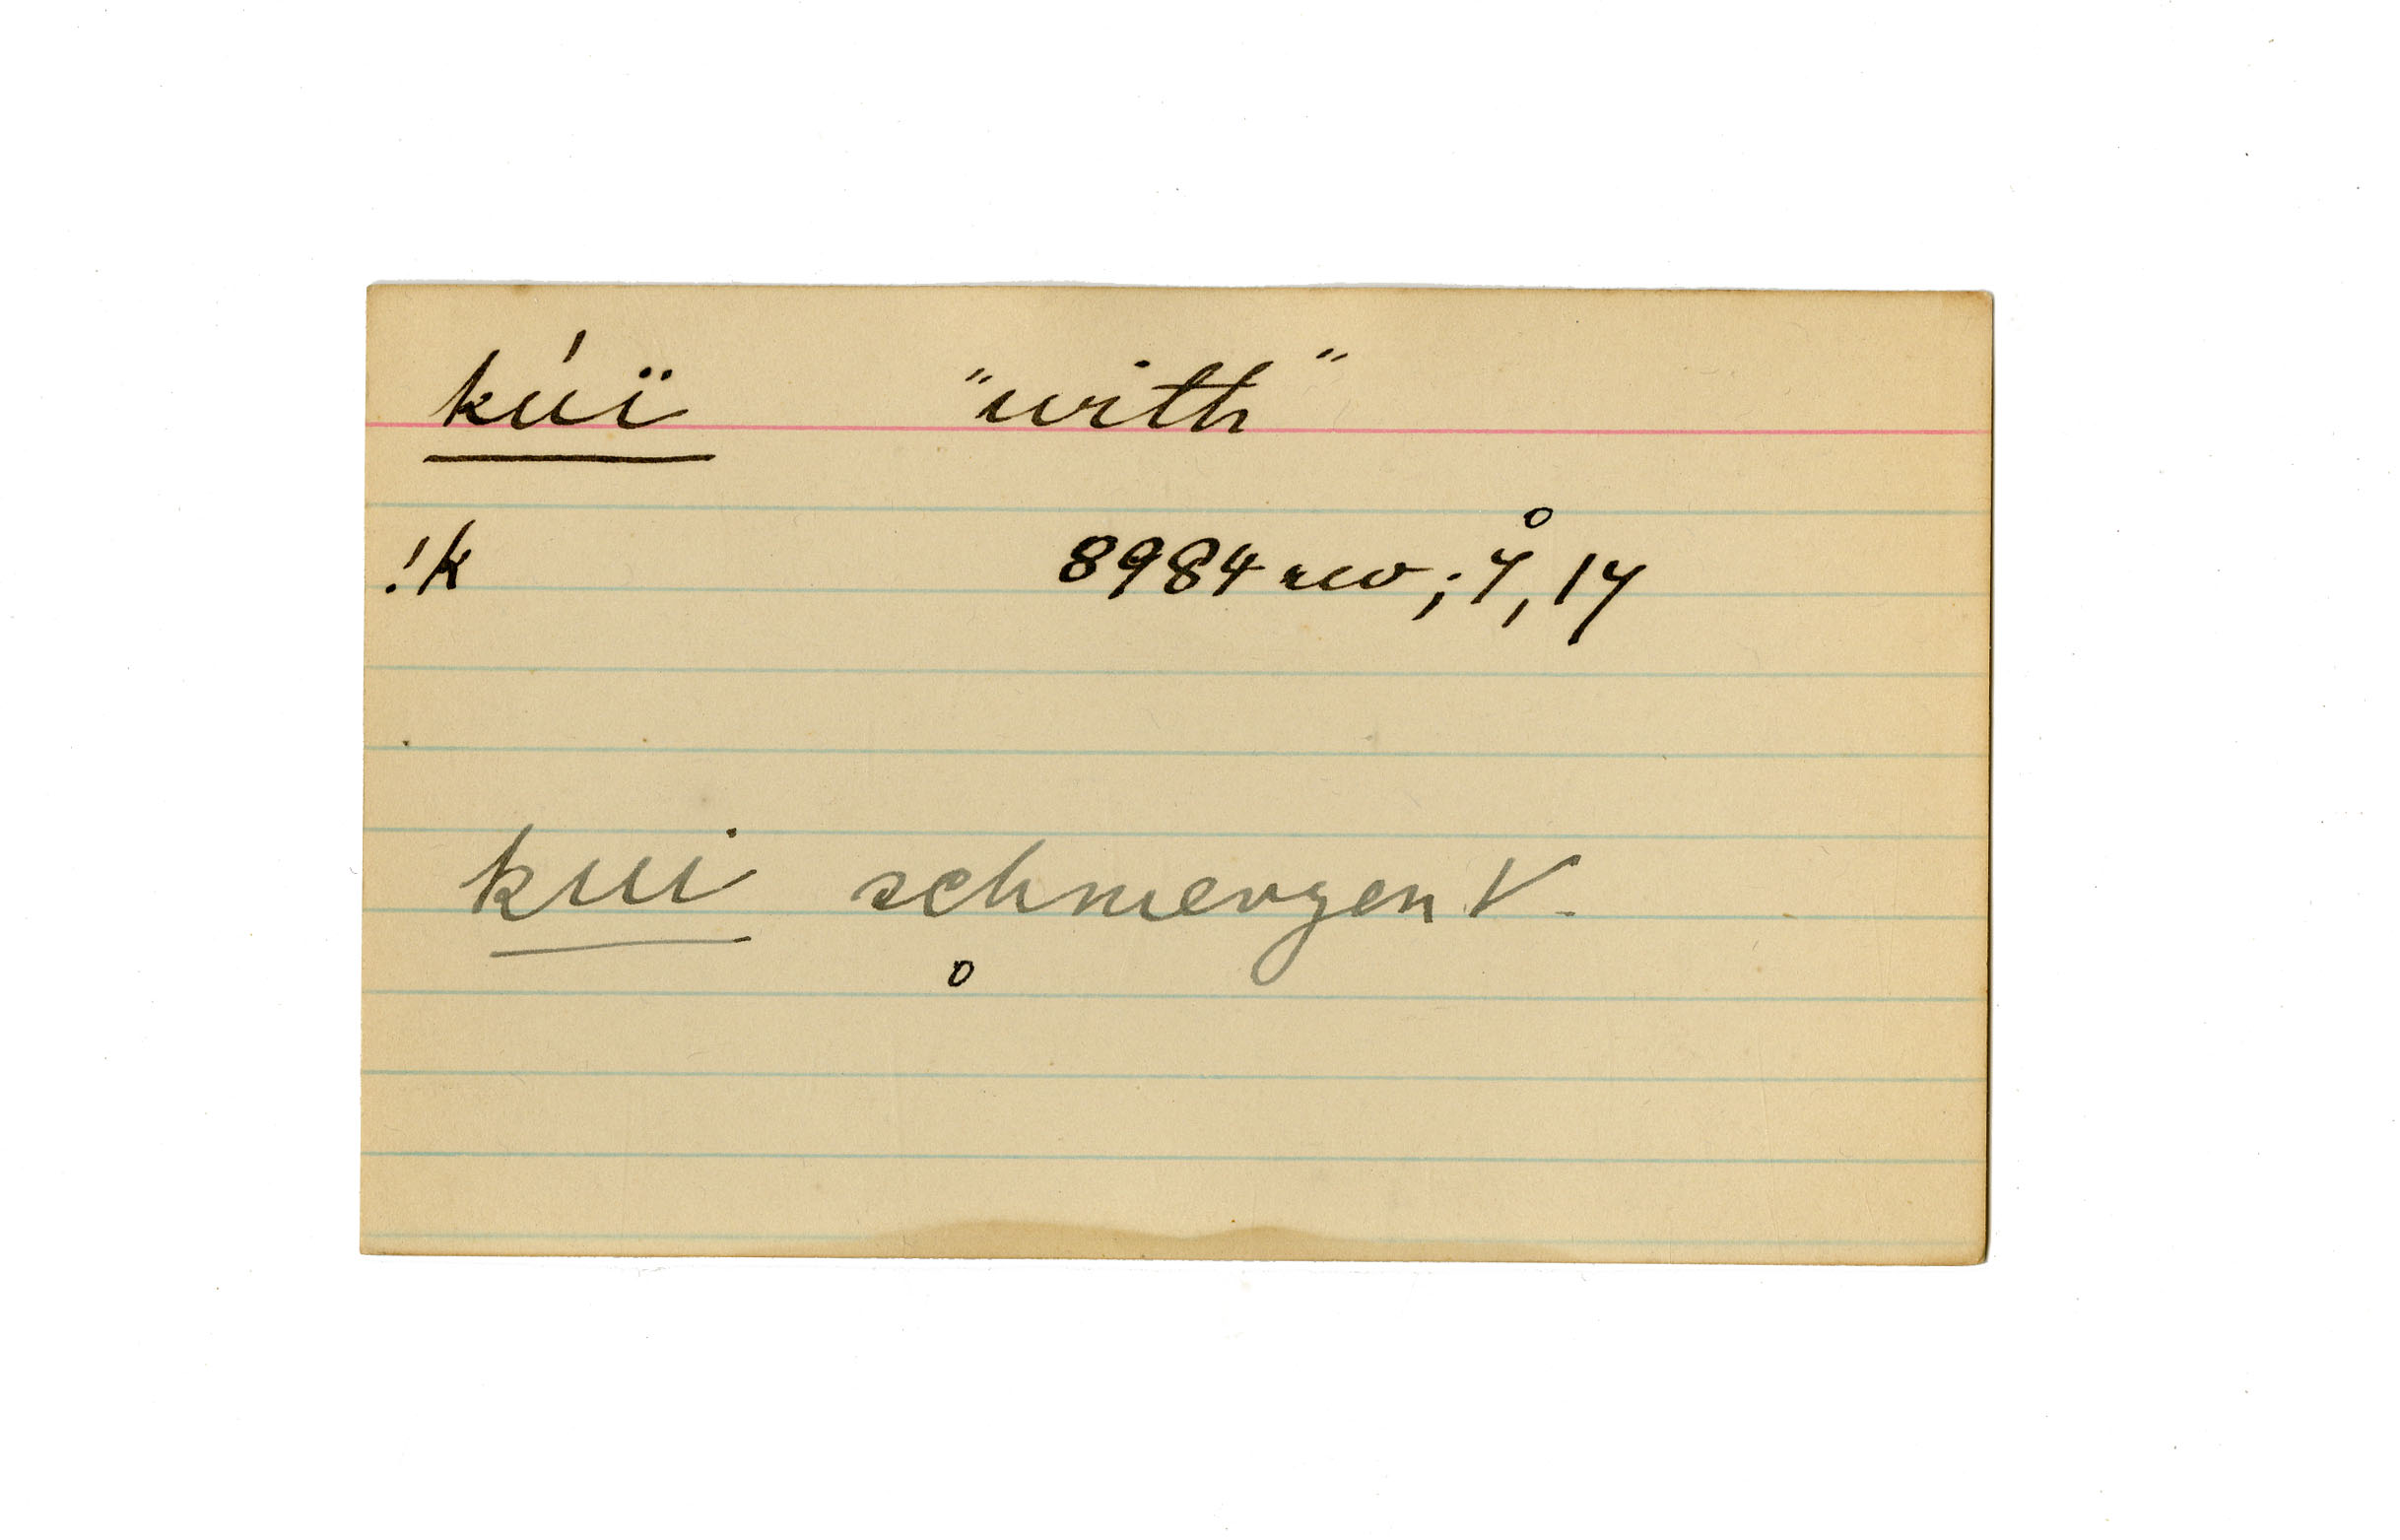 kúï "with"
!k 8984 rev; 7̊, 17
kui schmerzen V.
o